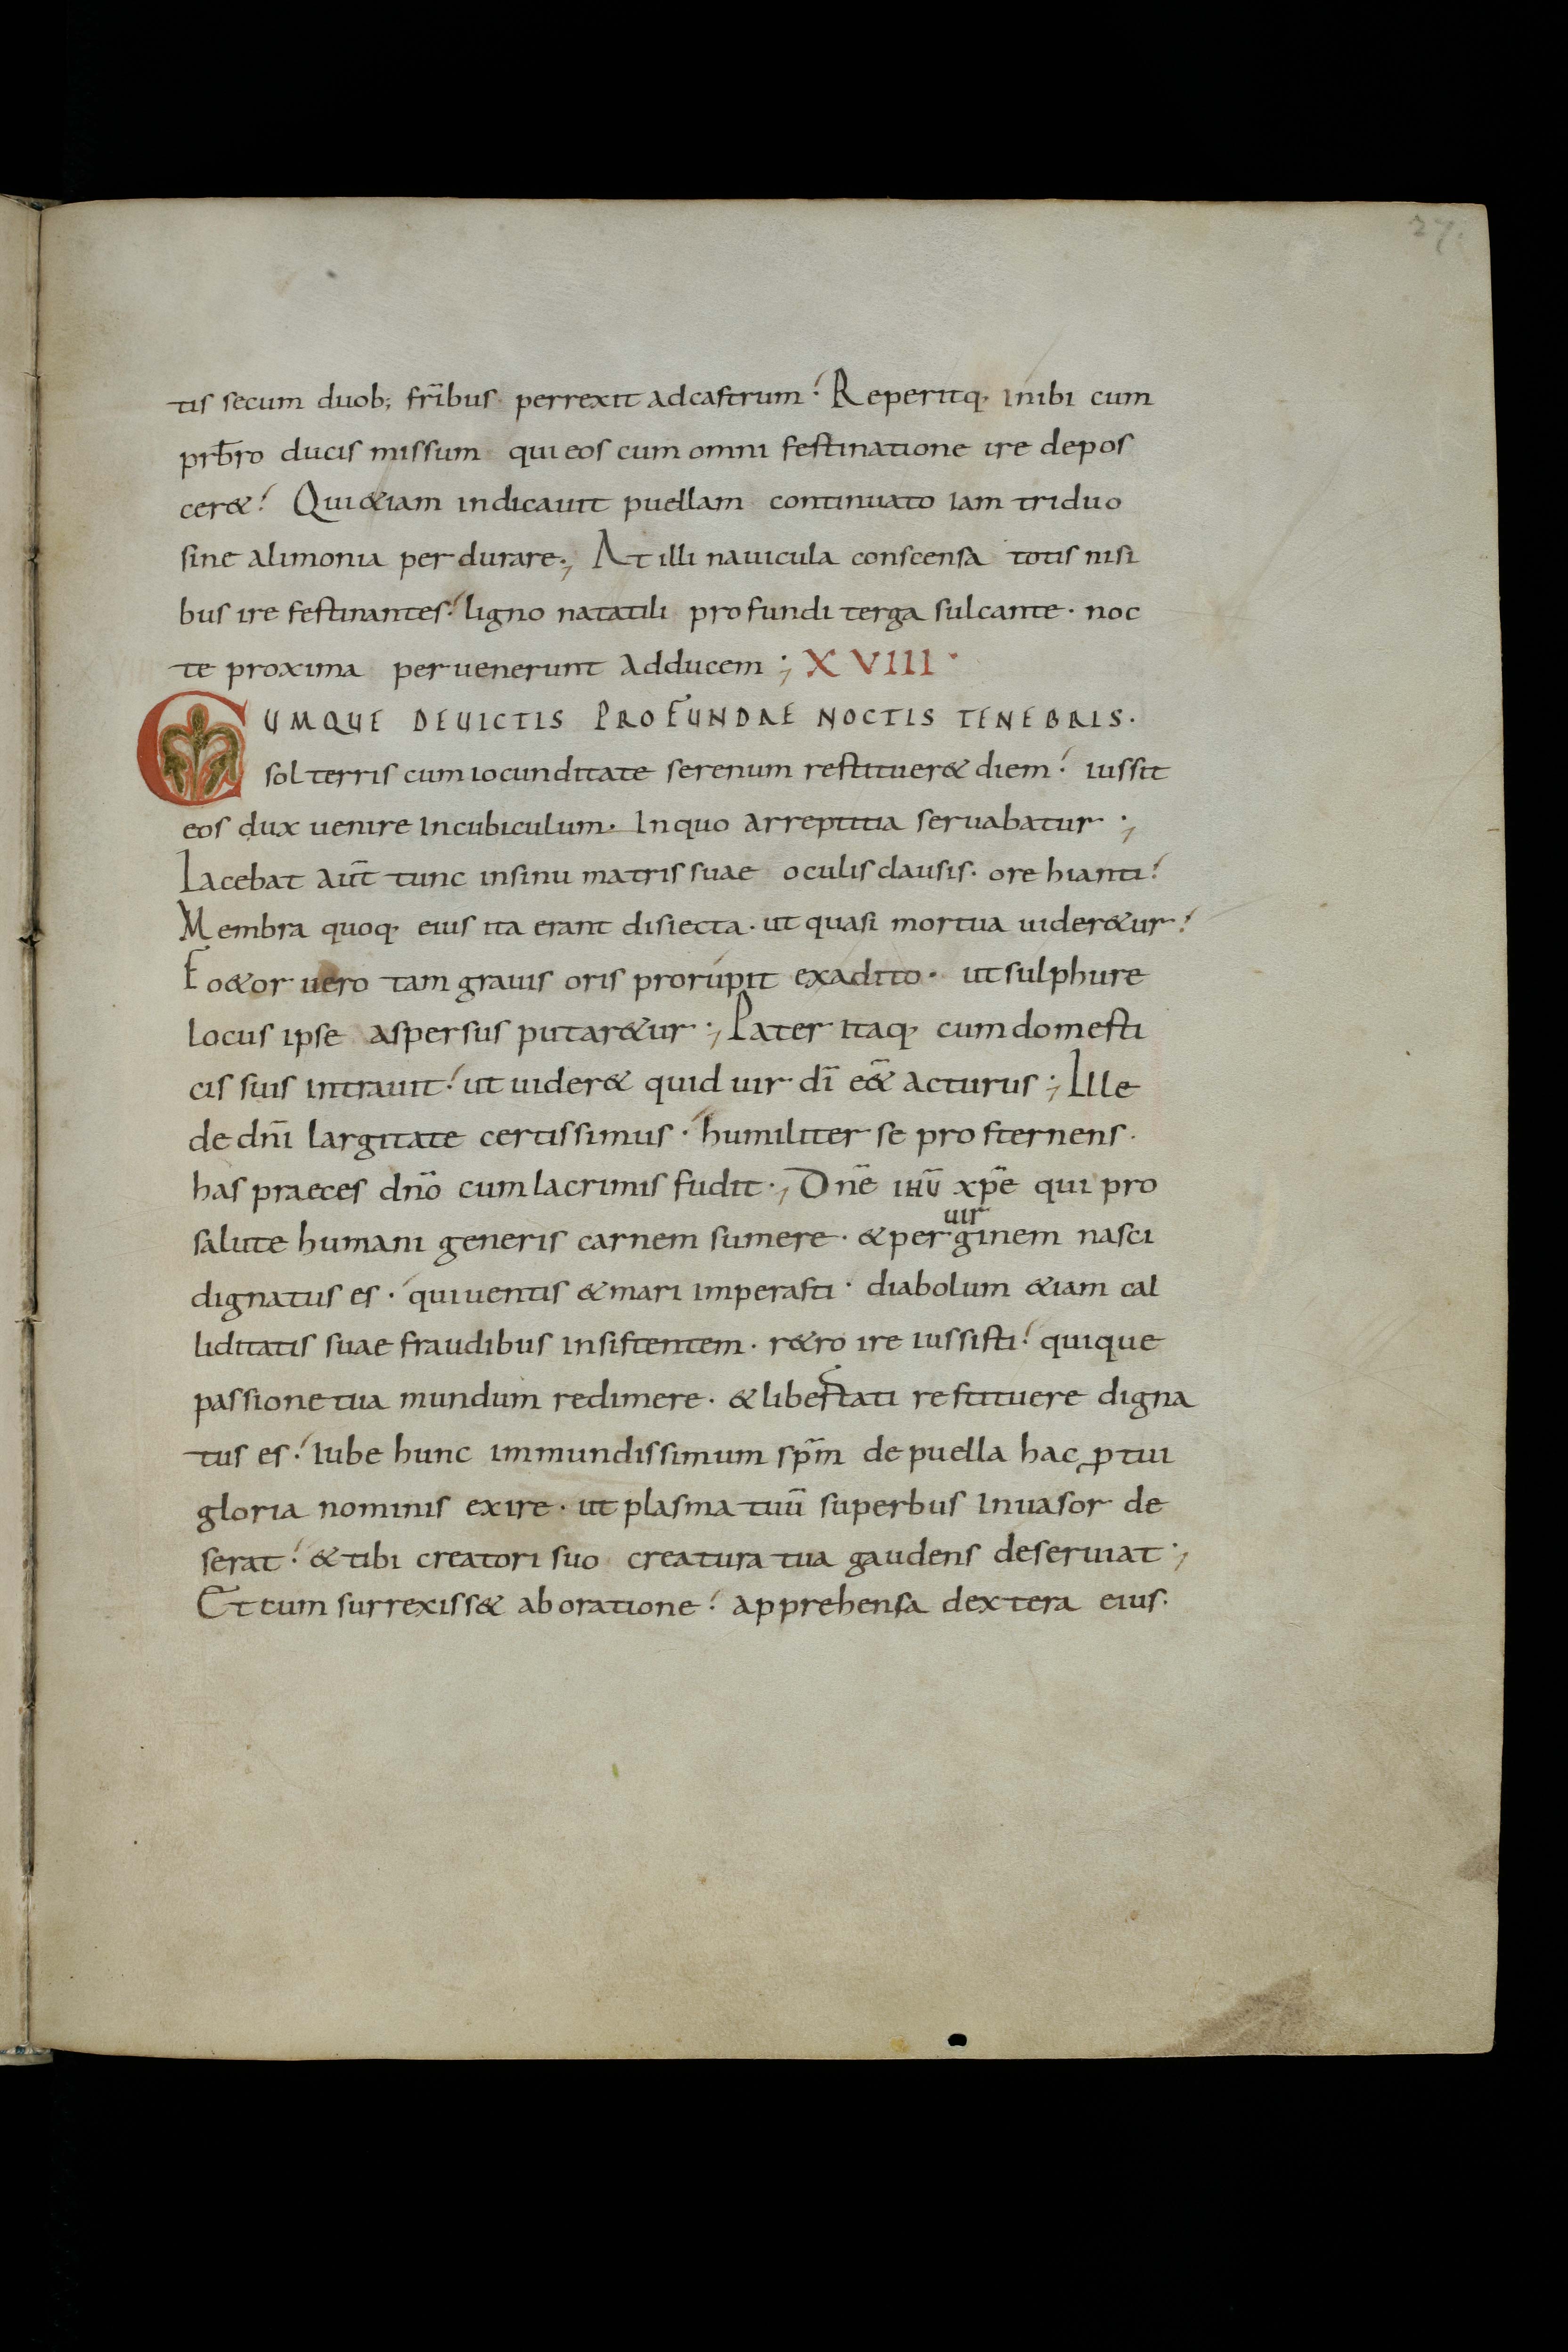 27.
tis secum duob; fr̄ibus perrexit adcastrum· Reperitq· inibi cum
prb̄ro ducis missum qui eos cum omni festinatione ire depos
cer&· Qui&iam indicauit puellam continuato iam triduo
sine alimonia perdurare; At illi nauicula conscensa totis nisi
bus ire festinantes· ligno natatili profundi terga sulcante· noc
te proxima peruenerunt adducem; XVIII·
CUMQUE DEUICTIS PROFUNDAE NOCTIS TENEBRIS·
sol terris cum iocunditate serenum restituer& diem· iussit
eos dux uenire incubiculum· Inquo arreptitia seruabatur;
Iacebat aut̄ tunc insinu matris suae oculis clausis· ore hianti·
Membra quoq· eius ita erant disiecta· ut quasi mortua uider&ur·
Fo&or uero tam grauis oris prorupit exadito· ut sulphure
locus ipse aspersus putar&ur; Pater itaq· cum domesti
cis suis intrauit· ut uider& quid uir dī e&̄ acturus; Ille
de dn̄i largitate certissimus· humiliter se prosternens·
has praeces dn̄o cum lacrimis fudit; Dn̄e ihū xp̄e qui pro
salute humani generis carnem sumere· &per uir ginem nasci
dignatus es· qui uentis &mari imperasti· diabolum &iam cal
liditatis suae fraudibus insistentem· r&ro ire iussisti· quique
passione tua mundum redimere· &libertati restituere digna
tus es· iube hunc immundissimum sp̄m de puella hac ꝓ tui
gloria nominis exire· ut plasma tuū superbus inuasor de
serat· &tibi creatori suo creatura tua gaudens deseruiat;
Et cum surrexiss& aboratione· apprehensa dextera eius·